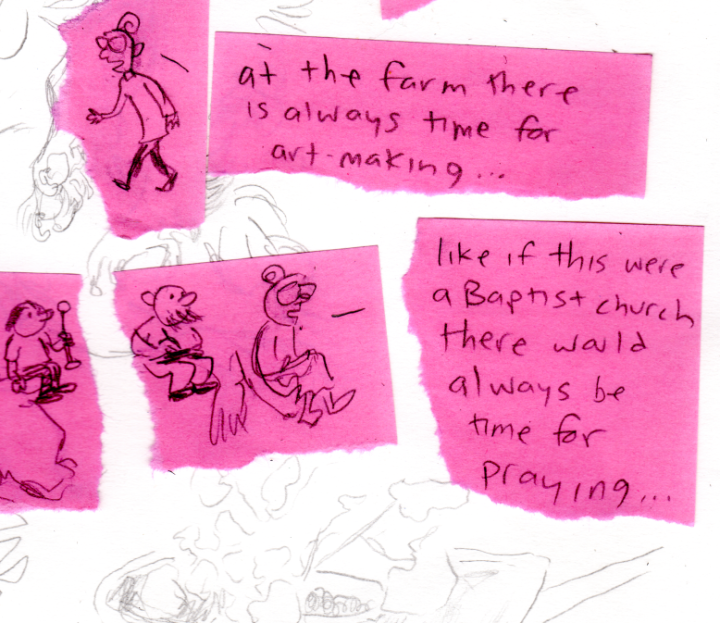 at the farm there
is always time for
art-making...
like if this were
a Baptist church
there would
always be
time for
praying...